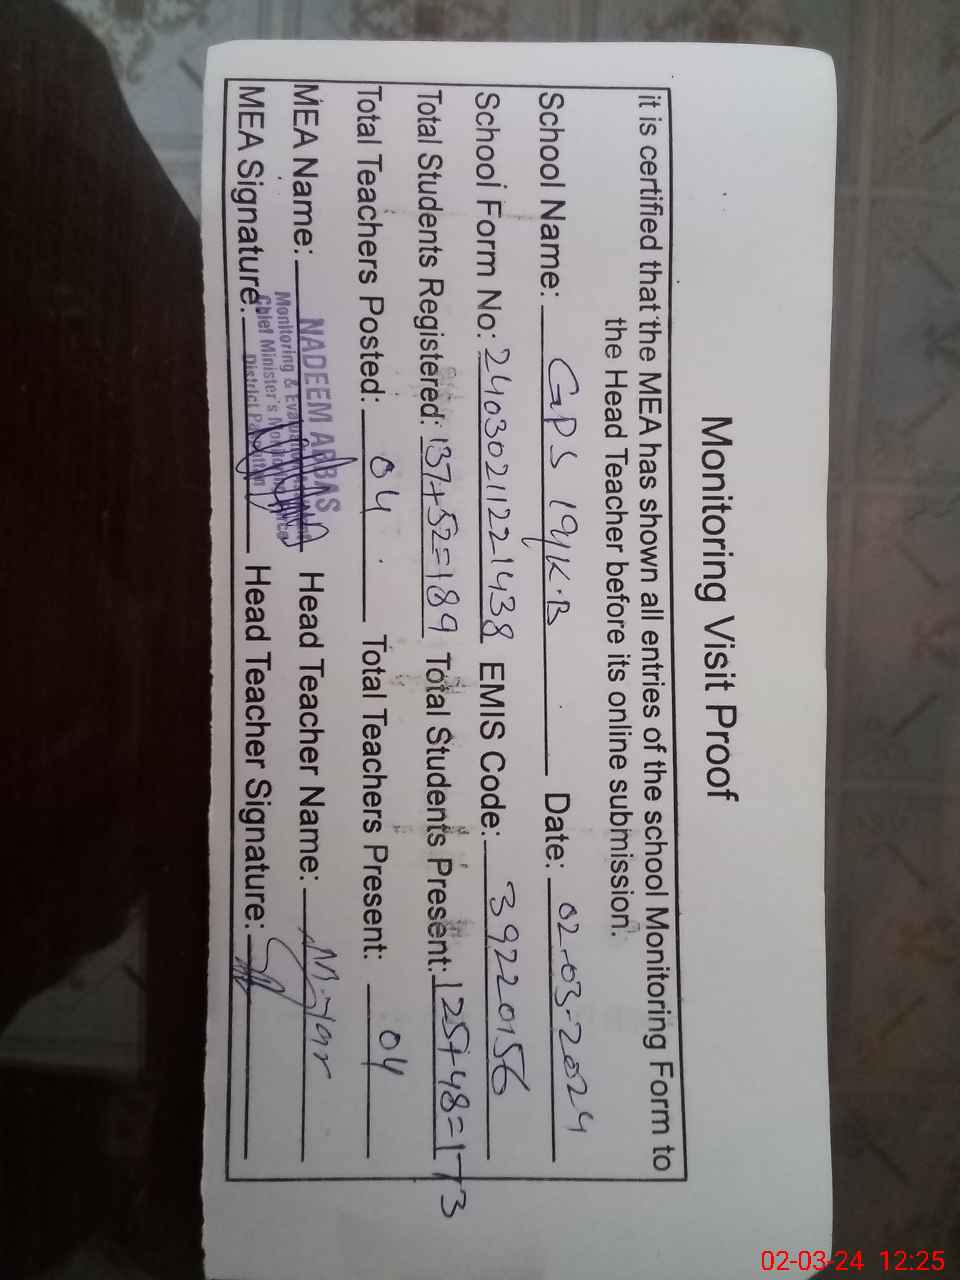 Monitoring Visit Proof
it is certified that the MEA has shown all entries of the school Monitoring Form to
the Head Teacher before its online submission.
School Name: GPS 19/K.B Date: 02-03-2024
School Form No: 24030211221438 EMIS Code: 39220156
Total Students Registered: 137+52=189 Total Students Present: 125+48=173
Total Teachers Posted: 04 Total Teachers Present: 04
MEA Name: NADEEM ABBAS Head Teacher Name:
Monitoring &
Chief Minister's
District
MEA Signature: Head Teacher Signature:
02-03-24 12:25